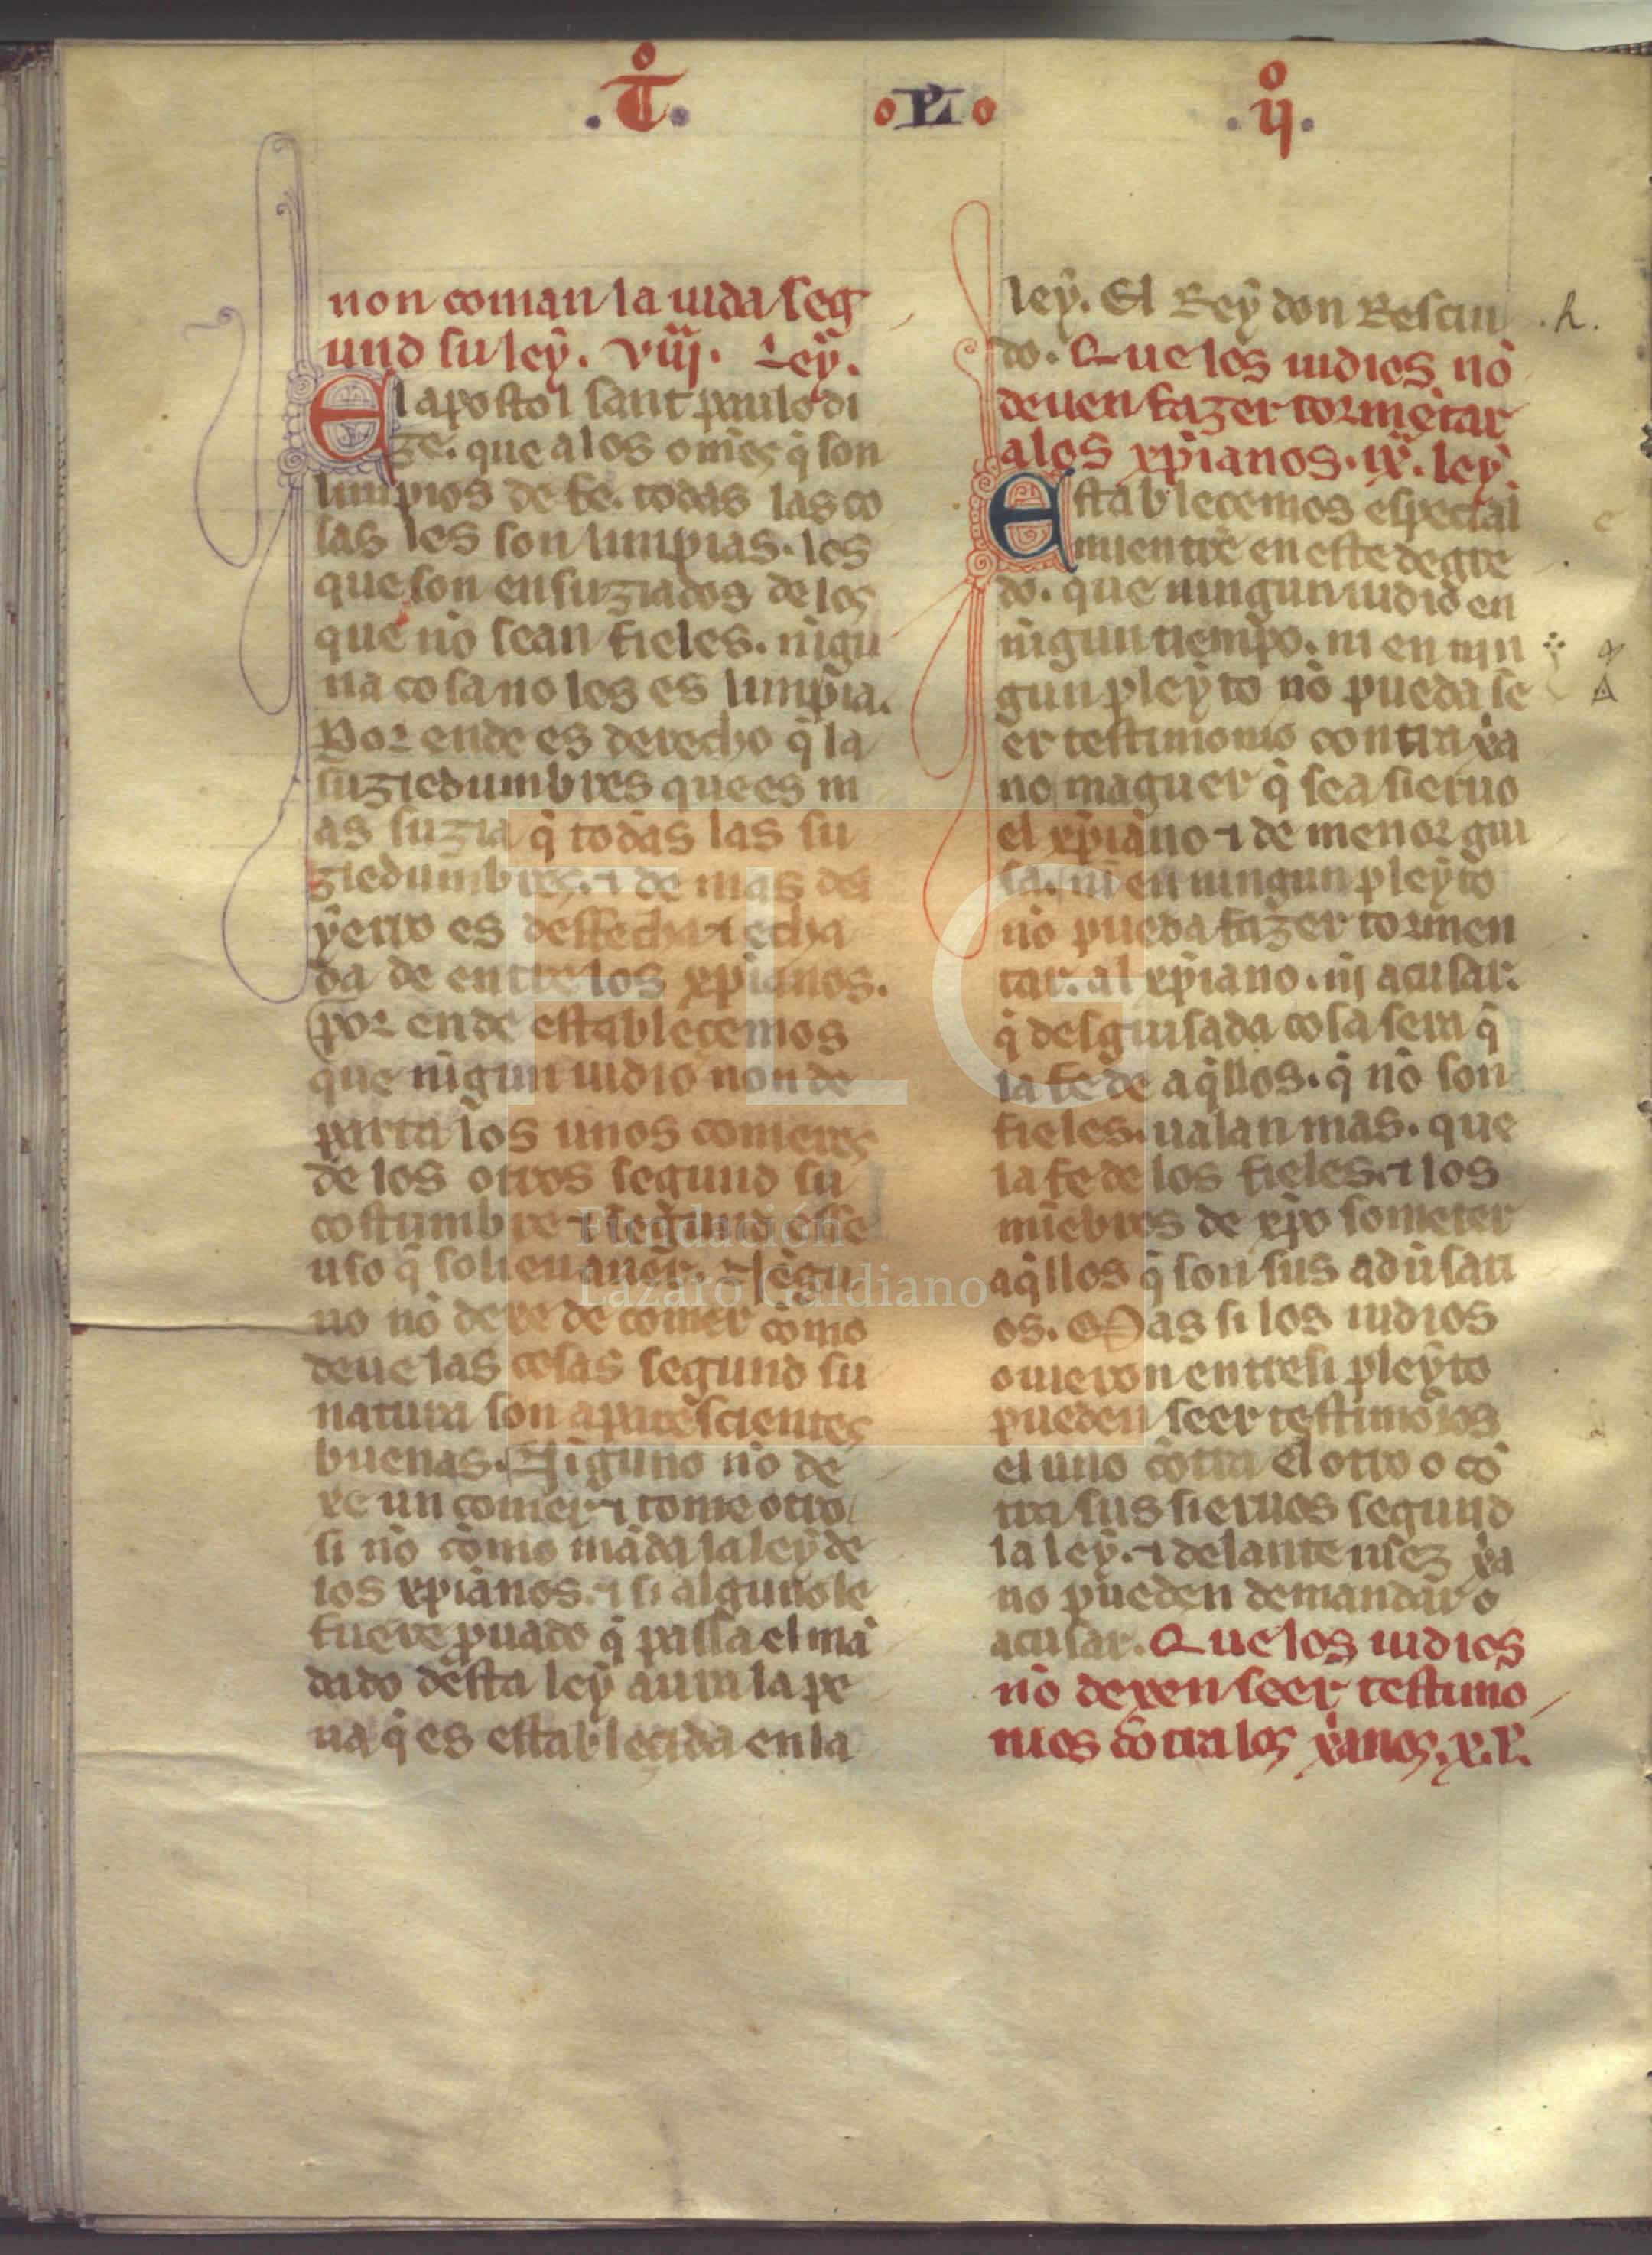 .T̊. o L o .ij̊.
non coman la uida seg
und su ley. viij. Ley.
El apostol sant paulo di
ze. que a los om̃es q̃ son
limpios de fe. todas las co
sas les son limpias. los
que son ensuziados de los
que nõ sean fieles. nĩgu
na cosa no les es limpia.
Por ende es derecho q̃ la
suziedumbres que es m
as suzia q̃ todas las su
ziedumbres. ⁊ de mas del
yerro es desfecha ⁊ echa
da de entre los xp̃ianos.
Por ende establecemos
que nĩgun iudio non de
parta los unos comeres
de los otros segund su
costumbre ⁊ segund esse
uso q̃ solien auer. Nĩgu
no nõ dexe de comer como
deue las cosas segund su
natura son aparescientes
buenas. Niguno nõ de
xe un comer ⁊ tome otro
si nõ como mãda la ley de
los xp̃ianos. ⁊ si alguno le
fuere prouado q̃ passa el mã
dado desta ley aura la pe
na q̃ es establecida en la
ley. El Rey don Rescin
do. Que los iudios nõ
deuen fazer tormẽtar
a los xp̃ianos. ix. ley.
Establecemos especial
mientre en este degre
do. que ningun iudio en
nĩgun tiempo. ni en nin
gun pleyto nõ pueda se
er testimonio contra xa
no maguer q̃ sea sieruo
el xp̃iano ⁊ de menor gui
sa. ni en ningun pleyto
nõ pueda fazer tormen
tar. al xp̃iano. nj acusar.
q̃ desguisada cosa sera q̃
la fe de aq̃llos. q̃ nõ son
fieles. ualan mas. que
la fe de los fieles. ⁊ los
miebros de xp̃o someter
aq̃llos q̃ son sus adũsari
os. Mas si los iudios
ouieron entre si pleyto
pueden seer testimonios
el uno cõtra el otro o cõ
tra sus sieruos segund
la ley. ⁊ delante iuez xa
no pueden demandar o
acusar. Que los iudios
nõ dexen seer testimo
nios cõtra los xanos. x. l.
.h.
FLG
Fundación
Lázaro Galdiano